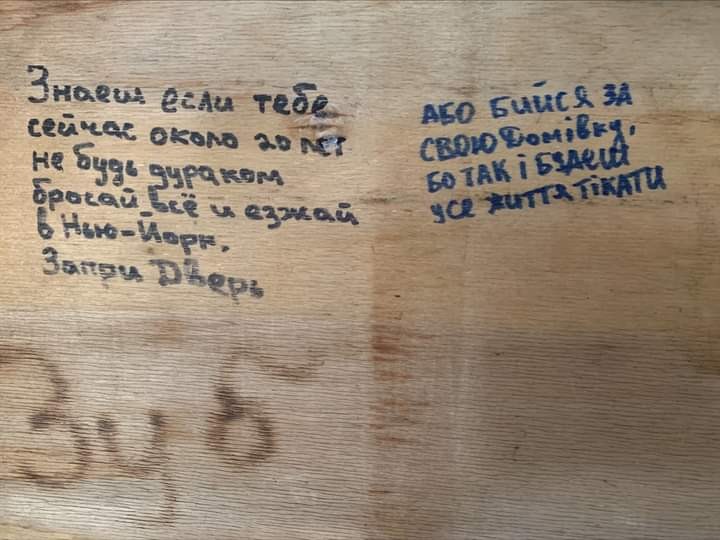 Знаеш если тебе
сейчас около 20 лет
не будь дураком
бросай всё и езжай
в Нью-Йорк.
Запри Дверь
АБО БИЙСЯ ЗА
СВОЮ Домівку,
БО ТАК І БУДЕШ
УСЕ ЖИТТЯ ТІКАТИ
Зуб